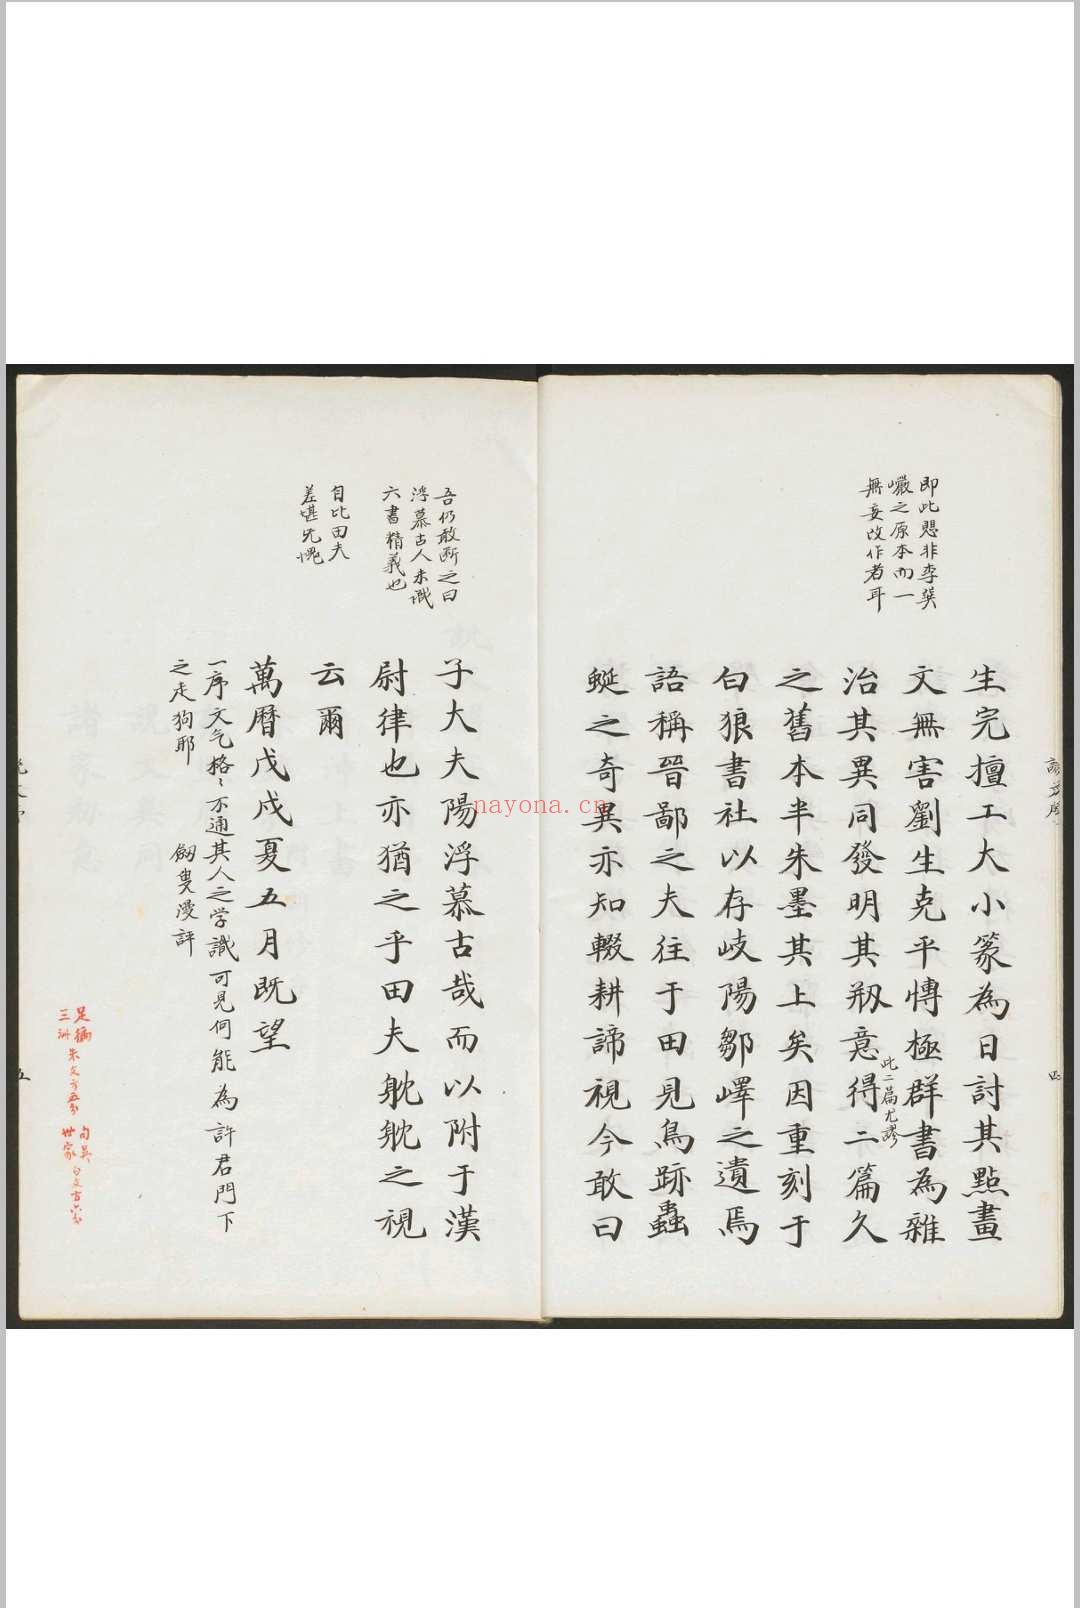 即此愳非李巽
巖之原本而一
無妄改作者耳
生完擅工大小篆為日討其點畫
文無害劉生克平慱極群書為雜
治其異同發明其剏意得二篇久
此二篇尤謬
之舊本半朱墨其上矣因重刻于
白狼書社以存岐陽鄒嶧之遺焉
語稱晉鄙之夫往于田見鳥跡蟲
蜒之奇異亦知輟耕諦視今敢曰
四
吾仍敢断之曰
浮慕古人未識
六書精義也
自比田夫
差堪免愧
子大夫陽浮慕古哉而以附于漢
尉律也亦猶之乎田夫躭躭之視
云爾
萬曆戊戌夏五月既望
一序文气格〻不通其人之学識可見何能為許君門下
之走狗耶
劒叟漫評
足徧
三洲
句吳
世家
五
nayona.cn